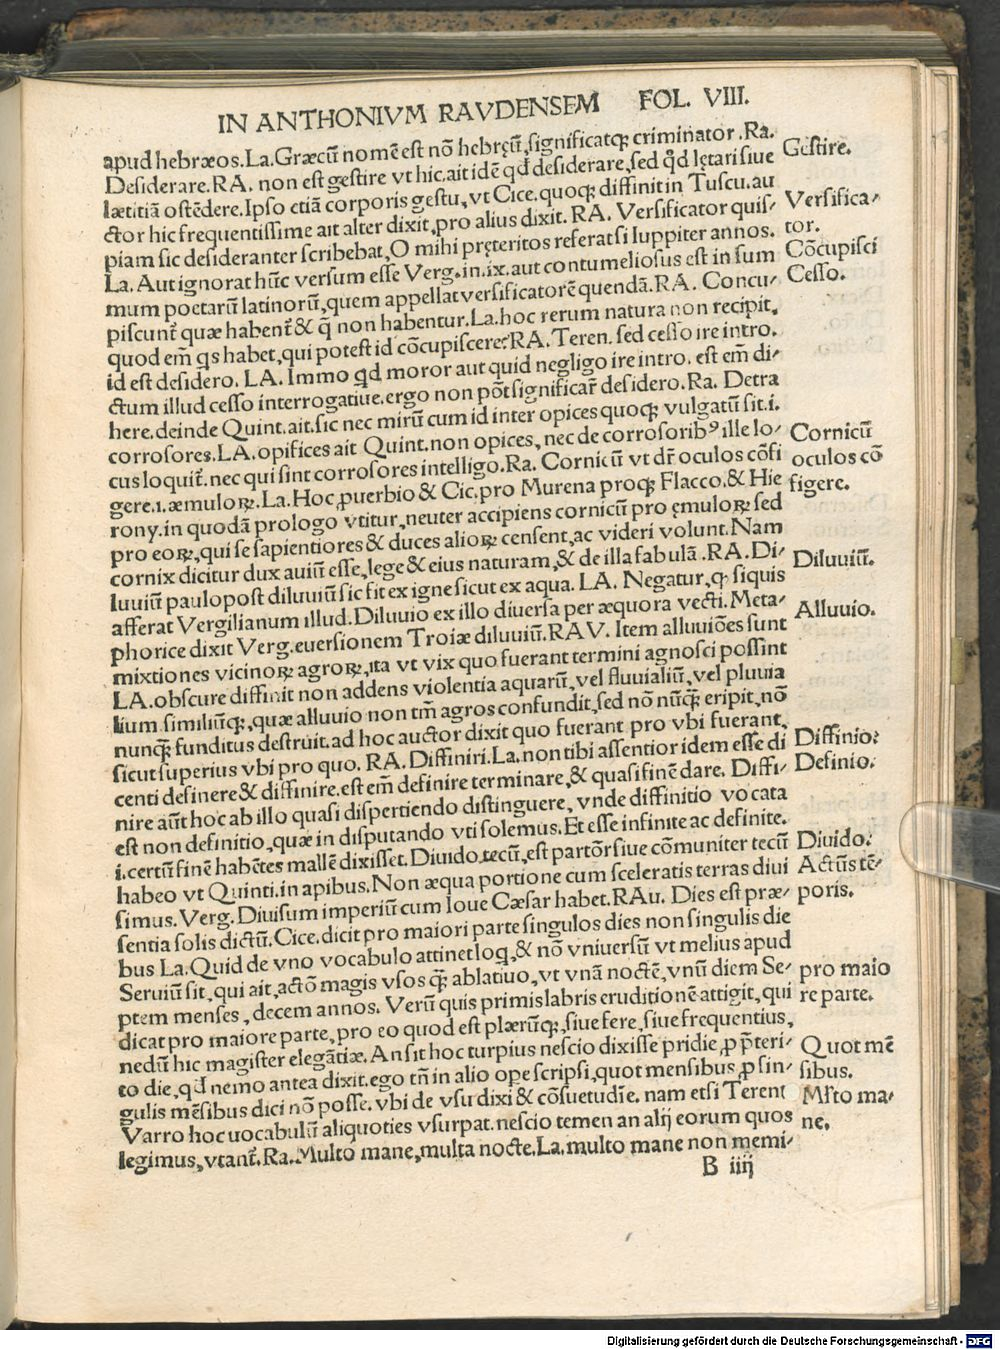 IN ANTHONIVM RAVDENSEM FOL. VIII.
apud hebræos. La. Græcū nomē est nō hebręū, significatq; criminator. Ra.
Desiderare. RA. non est gestire vt hic. ait idē qd desiderare, sed qd lętari siue
lætitiā ostēdere. Ipso etiā corporis gestu, vt Cice. quoq; diffinit in Tuscu. au
ctor hic frequentissime ait alter dixit, pro alius dixit. RA. Versificator quis-
piam sic desideranter scribebat, O mihi pręteritos referat si Iuppiter annos.
La. Aut ignorat hūc versum esse Verg. in. ix. aut contumeliosus est in sum
mum poetarū latinorū, quem appellat versificatorē quendā. RA. Concu-
piscunt quæ habent & q̄ non habentur. La. hoc rerum natura non recipit,
quod em̄ qs habet, qui potest id cōcupiscere? RA. Teren. sed cesso ire intro.
id est desidero. LA. Immo qd moror aut quid negligo ire intro. est em̄ di-
ctum illud cesso interrogatiue. ergo non pōt significar̄ desidero. Ra. Detra
here. deinde Quint. ait. sic nec mirū cum id inter opices quoq; vulgatū sit. i.
corrosores. LA. opifices ait Quint. non opices, nec de corrosorib⁹ ille lo-
cus loquit̄. nec qui sint corrosores intelligo. Ra. Cornicū vt dr̄ oculos cōfi
gere. i. æmuloꝝ. La. Hoc ꝓuerbio & Cic. pro Murena proq; Flacco. & Hie
rony. in quodā prologo vtitur, neuter accipiens cornicū pro ęmuloꝝ sed
pro eoꝝ, qui se sapientiores & duces alioꝝ censent, ac videri volunt. Nam
cornix dicitur dux auiū esse, lege & eius naturam, & de illa fabulā. RA. Di-
luuiū paulopost diluuiū sic fit ex igne sicut ex aqua. LA. Negatur, ꝙ siquis
afferat Vergilianum illud. Diluuio ex illo diuersa per æquora vecti. Meta-
phorice dixit Verg. euersionem Troiæ diluuiū. RAV. Item alluuiōes sunt
mixtiones vicinoꝝ agroꝝ, ita vt vix quo fuerant termini agnosci possint
LA. obscure diffinit non addens violentia aquarū, vel fluuialiū, vel pluuia
lium similiūq;, quæ alluuio non tm̄ agros confundit, sed nō nūq̄ eripit, nō
nunq̄ funditus destruit. ad hoc auctor dixit quo fuerant pro vbi fuerant,
sicut superius vbi pro quo. RA. Diffiniri. La. non tibi assentior idem esse di
centi definere & diffinire. est em̄ definire terminare, & quasi finē dare. Diffi-
nire aūt hoc ab illo quasi dispertiendo distinguere, vnde diffinitio vocata
est non definitio, quæ in disputando vti solemus. Et esse infinite ac definite.
i. certū finē habētes mallē dixisset. Diuido tecū, est partōr siue cōmuniter tecū
habeo vt Quinti. in apibus. Non æqua portione cum sceleratis terras diui
simus. Verg. Diuisum imperiū cum Ioue Cæsar habet. RAu. Dies est præ-
sentia solis dictū. Cice. dicit pro maiori parte singulos dies non singulis die
bus La. Quid de vno vocabulo attinet loq, & nō vniuersū vt melius apud
Seruiū sit, qui ait, actō magis vsos q̄ ablatiuo, vt vnā noctē, vnū diem Se-
ptem menses, decem annos. Verū quis primis labris eruditionē attigit, qui
dicat pro maiore parte, pro eo quod est plærūq;, siue fere, siue frequentius,
nedū hic magister elegātiæ. An sit hoc turpius nescio dixisse pridie, ꝓ p̄teri-
to die, qd nemo antea dixit. ego tn̄ in alio ope scripsi, quot mensibus, ꝓ sin-
gulis mēsibus dici nō posse. vbi de vsu dixi & cōsuetudīe. nam etsi Terent
Varro hoc uocabulū aliquoties vsurpat. nescio temen an alij eorum quos
legimus, vtant̄. Ra. Multo mane, multa nocte. La. multo mane non memi-
B iiij
Gestire.
Versifica-
tor.
Cōcupisci
Cesso.
Cornicū
oculos cō
figere.
Diluuiū.
Alluuio.
Diffinio:
Definio.
Diuido:
Actūs tē-
poris.
pro maio
re parte.
Quot mē
sibus.
Mlto ma-
ne.
Digitalisierung gefördert durch die Deutsche Forschungsgemeinschaft - DFG